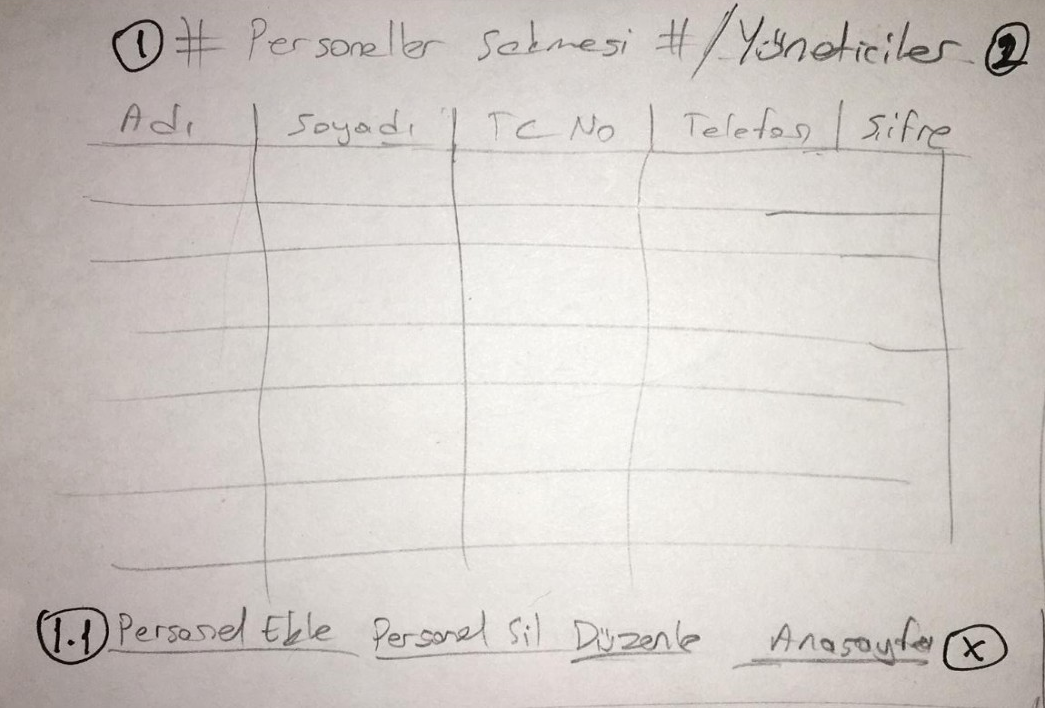 1 # Personeller Sekmesi # / Yöneticiler 2
Adı | Soyadı | TC No | Telefon | Şifre
1.1 Personel Ekle Personel Sil Düzenle Anasayfa X